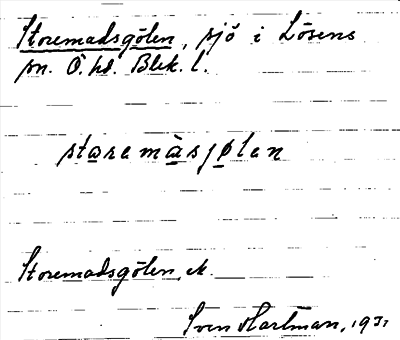 Storemadsgölen, sjö i Lösens
sn. Ö. hd. Blek. l.
staremàsjølen
Storemadsgölen, ek.
Sven Hartman, 1931